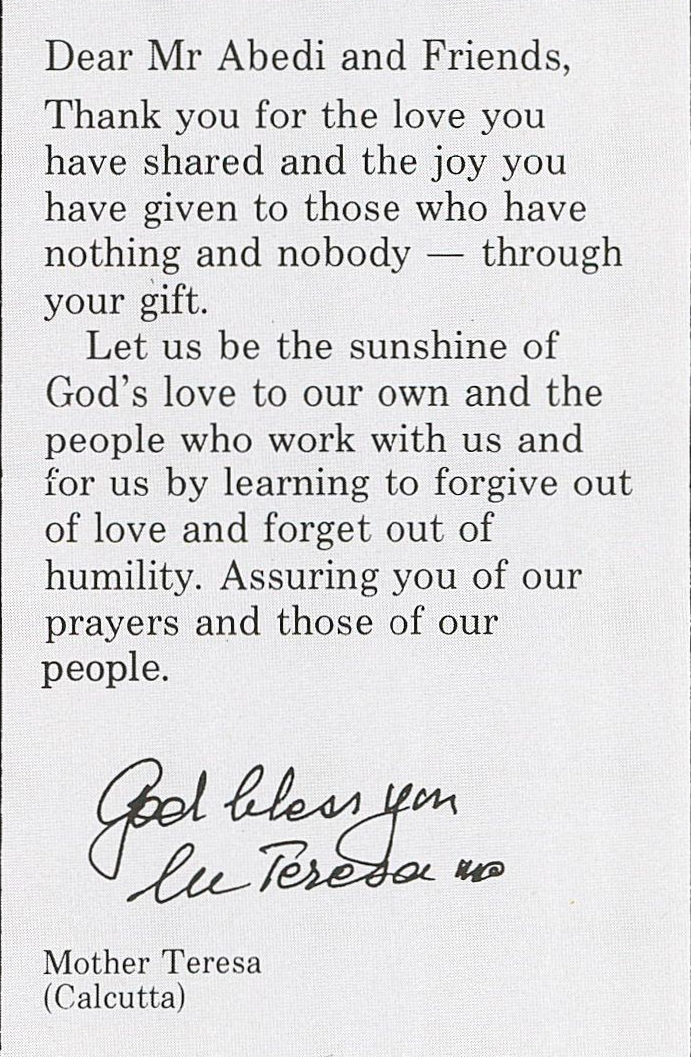 Dear Mr Abedi and Friends,
Thank you for the love you
have shared and the joy you
have given to those who have
nothing and nobody — through
your gift.
Let us be the sunshine of
God's love to our own and the
people who work with us and
for us by learning to forgive out
of love and forget out of
humility. Assuring you of our
prayers and those of our
people.
God bless you
Teresa
Mother Teresa
(Calcutta)